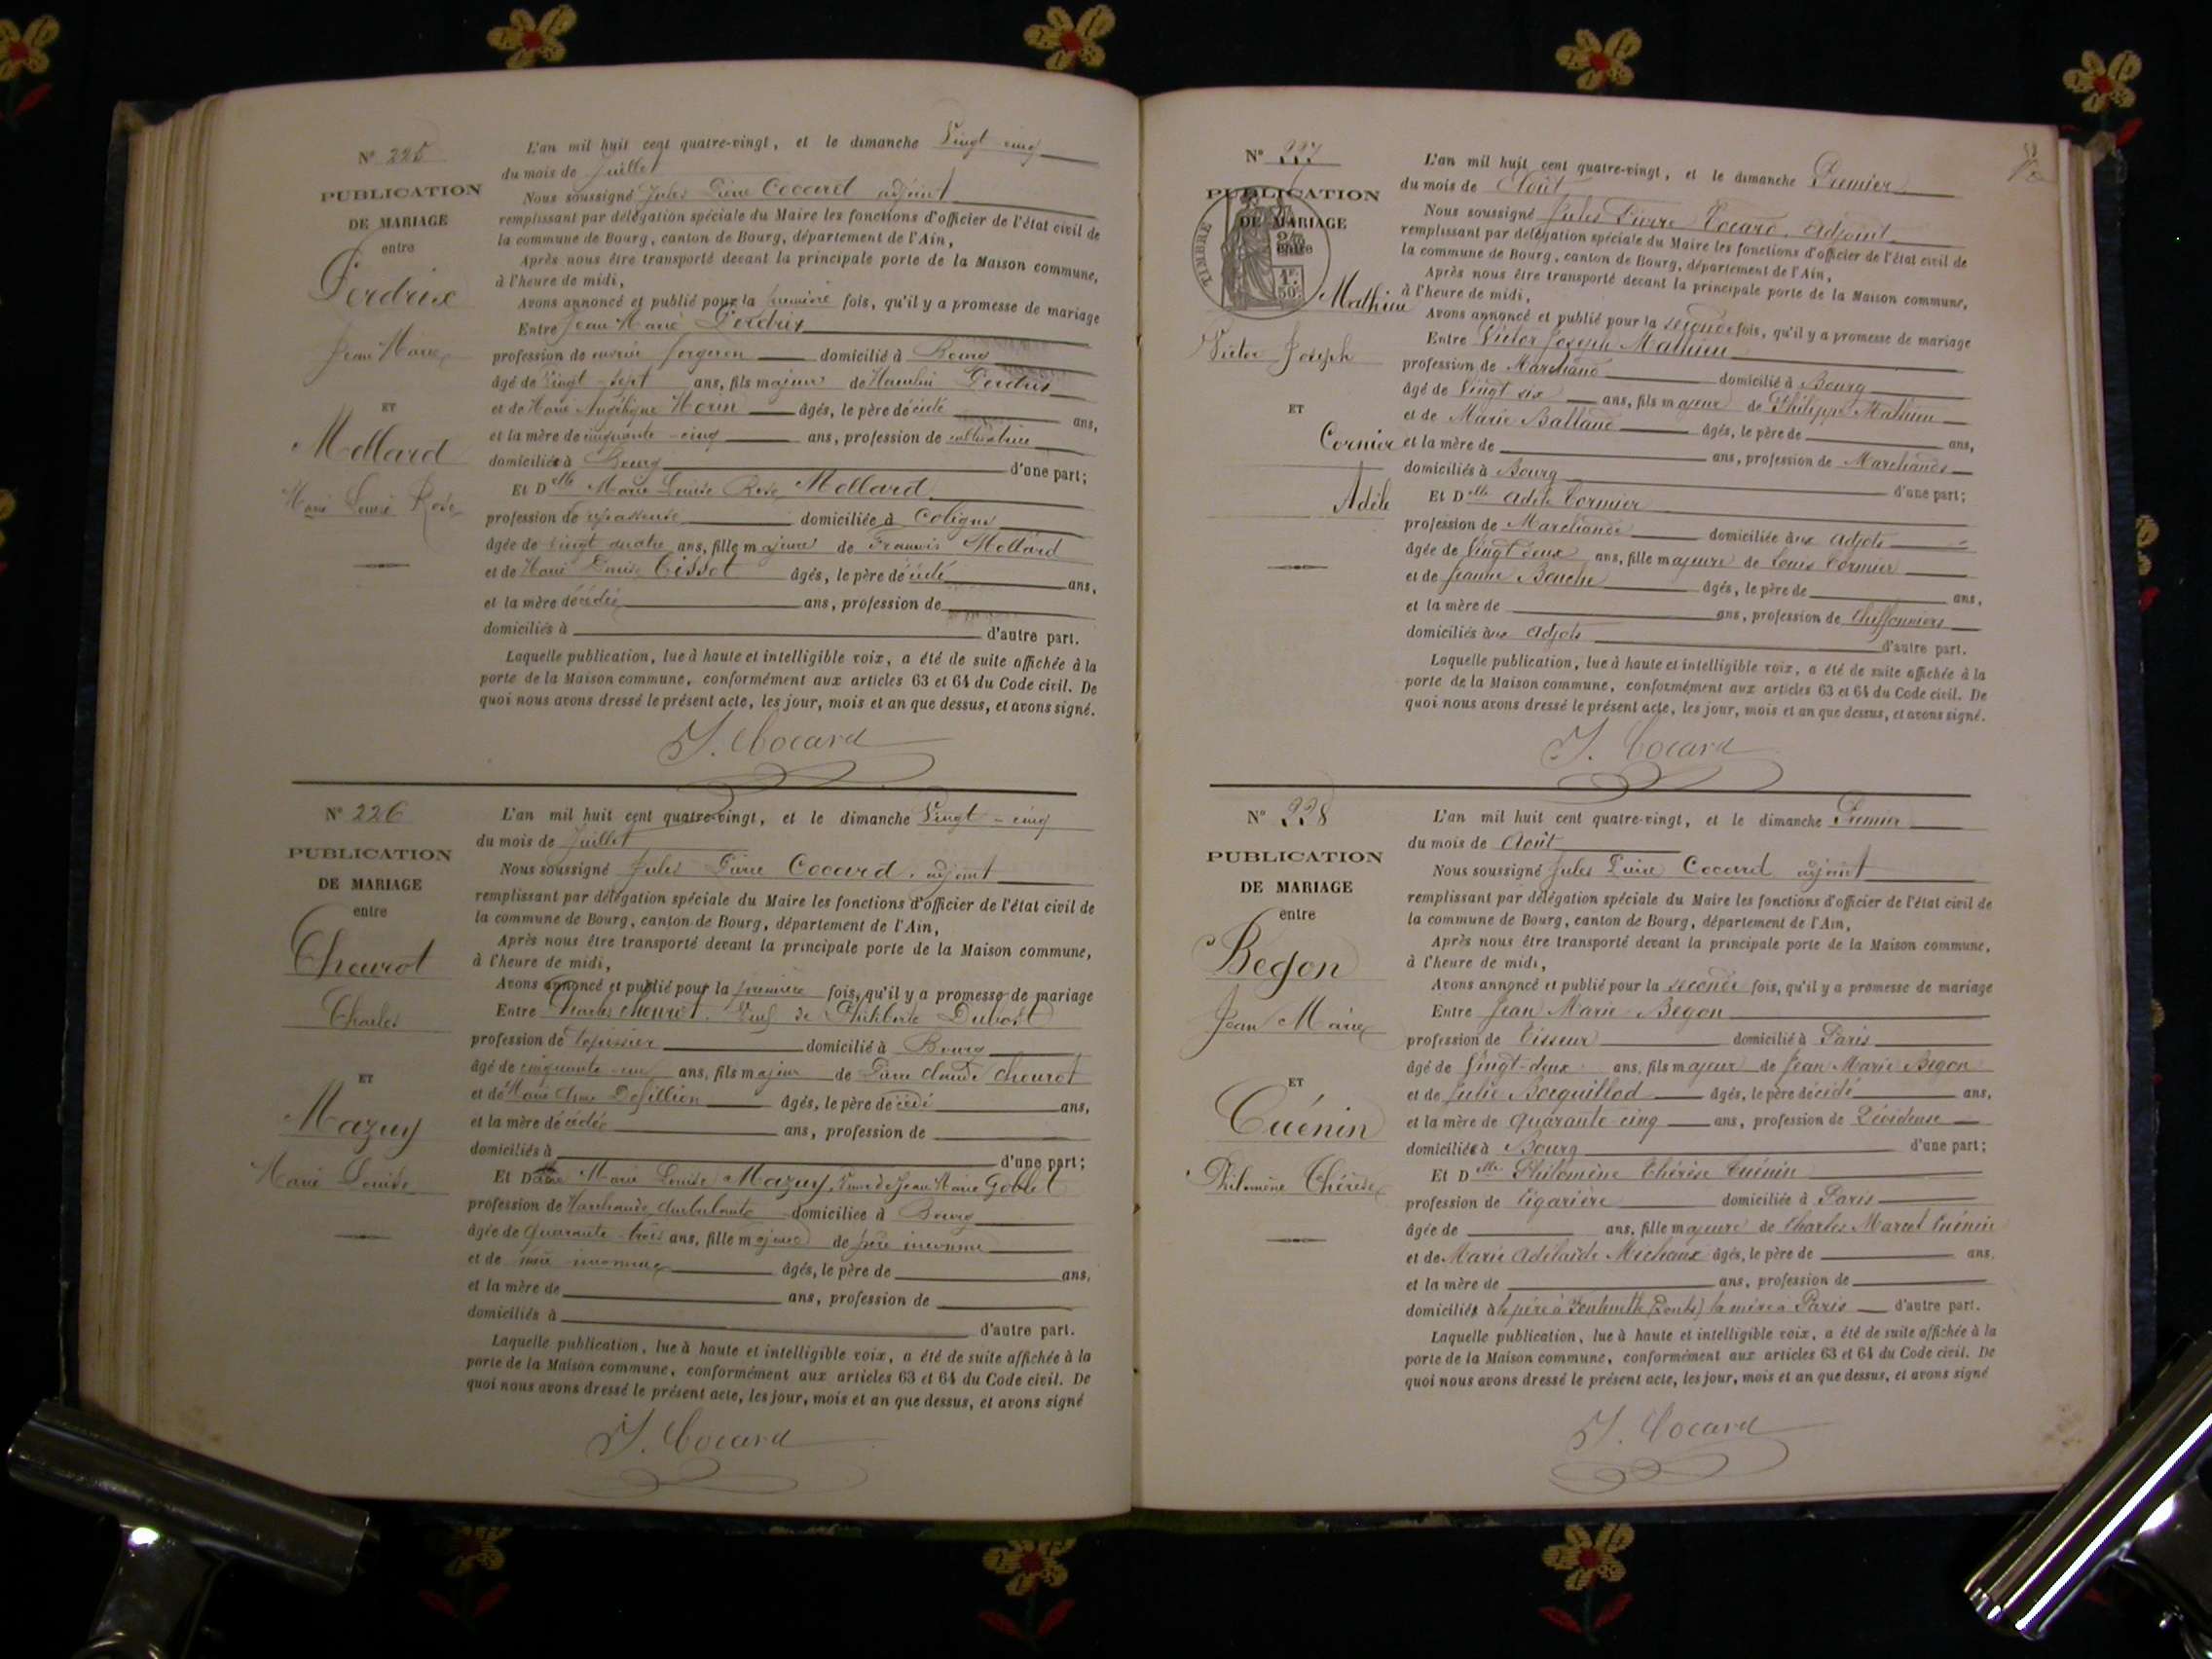 N° 225
PUBLICATION
DE MARIAGE
entre
Perdrix
Jean Marie
ET
Mollard
Marie Louise Rose
L'an mil huit cent quatre-vingt, et le dimanche Vingt-cinq
du mois de Juillet
Nous soussigné Jules Pierre Cocard adjoint
remplissant par délégation spéciale du Maire les fonctions d'officier de l'état civil de
la commune de Bourg, canton de Bourg, département de l'Ain,
Après nous être transporté devant la principale porte de la Maison commune,
à l'heure de midi,
Avons annoncé et publié pour la première fois, qu'il y a promesse de mariage
Entre Jean Marie Perdrix
profession de ouvrier forgeron domicilié à Bourg
âgé de Vingt-sept ans, fils majeur de Perdrix
et de Marie Angélique Morin âgés, le père décédé ans,
et la mère de cinquante-cinq ans, profession de cultivatrice
domiciliés à Bourg d'une part;
Et Dlle Marie Louise Rose Mollard
profession de repasseuse domiciliée à Coligny
âgée de vingt quatre ans, fille majeure de François Mollard
et de Marie Louise Tissot âgés, le père décédé ans,
et la mère décédée ans, profession de
domiciliés à d'autre part.
Laquelle publication, lue à haute et intelligible voix, a été de suite affichée à la
porte de la Maison commune, conformément aux articles 63 et 64 du Code civil. De
quoi nous avons dressé le présent acte, les jour, mois et an que dessus, et avons signé.
J. Cocard
N° 226
PUBLICATION
DE MARIAGE
entre
Chourot
Charles
ET
Mazuy
Marie Louise
L'an mil huit cent quatre-vingt, et le dimanche Vingt-cinq
du mois de Juillet
Nous soussigné Jules Pierre Cocard, adjoint
remplissant par délégation spéciale du Maire les fonctions d'officier de l'état civil de
la commune de Bourg, canton de Bourg, département de l'Ain,
Après nous être transporté devant la principale porte de la Maison commune,
à l'heure de midi,
Avons annoncé et publié pour la première fois, qu'il y a promesse de mariage
Entre Charles Chourot. Veuf de Philiberte Dubost
profession de tapissier domicilié à Bourg
âgé de cinquante-un ans, fils majeur de Pierre Claude Chourot
et de Marie âgés, le père décédé ans,
et la mère décédée ans, profession de
domiciliés à d'une part;
Et Dame Marie Louise Mazuy, Veuve de Jean Marie Goblet
profession de Marchande ambulante domiciliée à Bourg
âgée de Quarante-trois ans, fille majeure de père inconnu
et de mère inconnue âgés, le père de ans,
et la mère de ans, profession de
domiciliés à d'autre part.
Laquelle publication, lue à haute et intelligible voix, a été de suite affichée à la
porte de la Maison commune, conformément aux articles 63 et 64 du Code civil. De
quoi nous avons dressé le présent acte, les jour, mois et an que dessus, et avons signé
J. Cocard
N° 227
PUBLICATION
DE MARIAGE
entre
TIMBRE
1F. 50c.
Mathieu
Victor Joseph
ET
Cornier
Adèle
L'an mil huit cent quatre-vingt, et le dimanche Premier
du mois de Août
Nous soussigné Jules Pierre Cocard, Adjoint
remplissant par délégation spéciale du Maire les fonctions d'officier de l'état civil de
la commune de Bourg, canton de Bourg, département de l'Ain,
Après nous être transporté devant la principale porte de la Maison commune,
à l'heure de midi,
Avons annoncé et publié pour la seconde fois, qu'il y a promesse de mariage
Entre Victor Joseph Mathieu
profession de Marchand domicilié à Bourg
âgé de Vingt six ans, fils majeur de Philippe Mathieu
et de Marie Balland âgés, le père de ans,
et la mère de ans, profession de Marchands
domiciliés à Bourg d'une part;
Et Dlle Adèle Cornier
profession de Marchande domiciliée aux Adjots
âgée de Vingt deux ans, fille majeure de Louis Cornier
et de Jeanne Bouche âgés, le père de ans,
et la mère de ans, profession de Chiffonniers
domiciliés aux Adjots d'autre part.
Laquelle publication, lue à haute et intelligible voix, a été de suite affichée à la
porte de la Maison commune, conformément aux articles 63 et 64 du Code civil. De
quoi nous avons dressé le présent acte, les jour, mois et an que dessus, et avons signé.
J. Cocard
N° 228
PUBLICATION
DE MARIAGE
entre
Begon
Jean Marie
ET
Cuénin
Philomène Thérèse
L'an mil huit cent quatre-vingt, et le dimanche Premier
du mois de Août
Nous soussigné Jules Pierre Cocard adjoint
remplissant par délégation spéciale du Maire les fonctions d'officier de l'état civil de
la commune de Bourg, canton de Bourg, département de l'Ain,
Après nous être transporté devant la principale porte de la Maison commune,
à l'heure de midi,
Avons annoncé et publié pour la seconde fois, qu'il y a promesse de mariage
Entre Jean Marie Begon
profession de Tisseur domicilié à Paris
âgé de Vingt-deux ans, fils majeur de Jean Marie Begon
et de Julie Bocquillod âgés, le père décédé ans,
et la mère de Quarante cinq ans, profession de Dévideuse
domiciliés à Bourg d'une part;
Et Dlle Philomène Thérèse Cuénin
profession de Cigarière domiciliée à Paris
âgée de ans, fille majeure de Charles Marcel Cuénin
et de Marie Adélaïde Michaux âgés, le père de ans.
et la mère de ans, profession de
domiciliés à le père à (Doubs) la mère à Paris d'autre part.
Laquelle publication, lue à haute et intelligible voix, a été de suite affichée à la
porte de la Maison commune, conformément aux articles 63 et 64 du Code civil. De
quoi nous avons dressé le présent acte, les jour, mois et an que dessus, et avons signé
J. Cocard